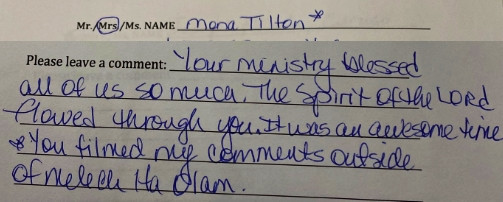 Mr./Mrs/Ms. NAME Mona Tilton*
Please leave a comment: Your ministry blessed
all of us so much. The Spirit of the LORD
flowed through you. It was an awesome time
*You filmed my comments outside
of Melech Ha Olam.